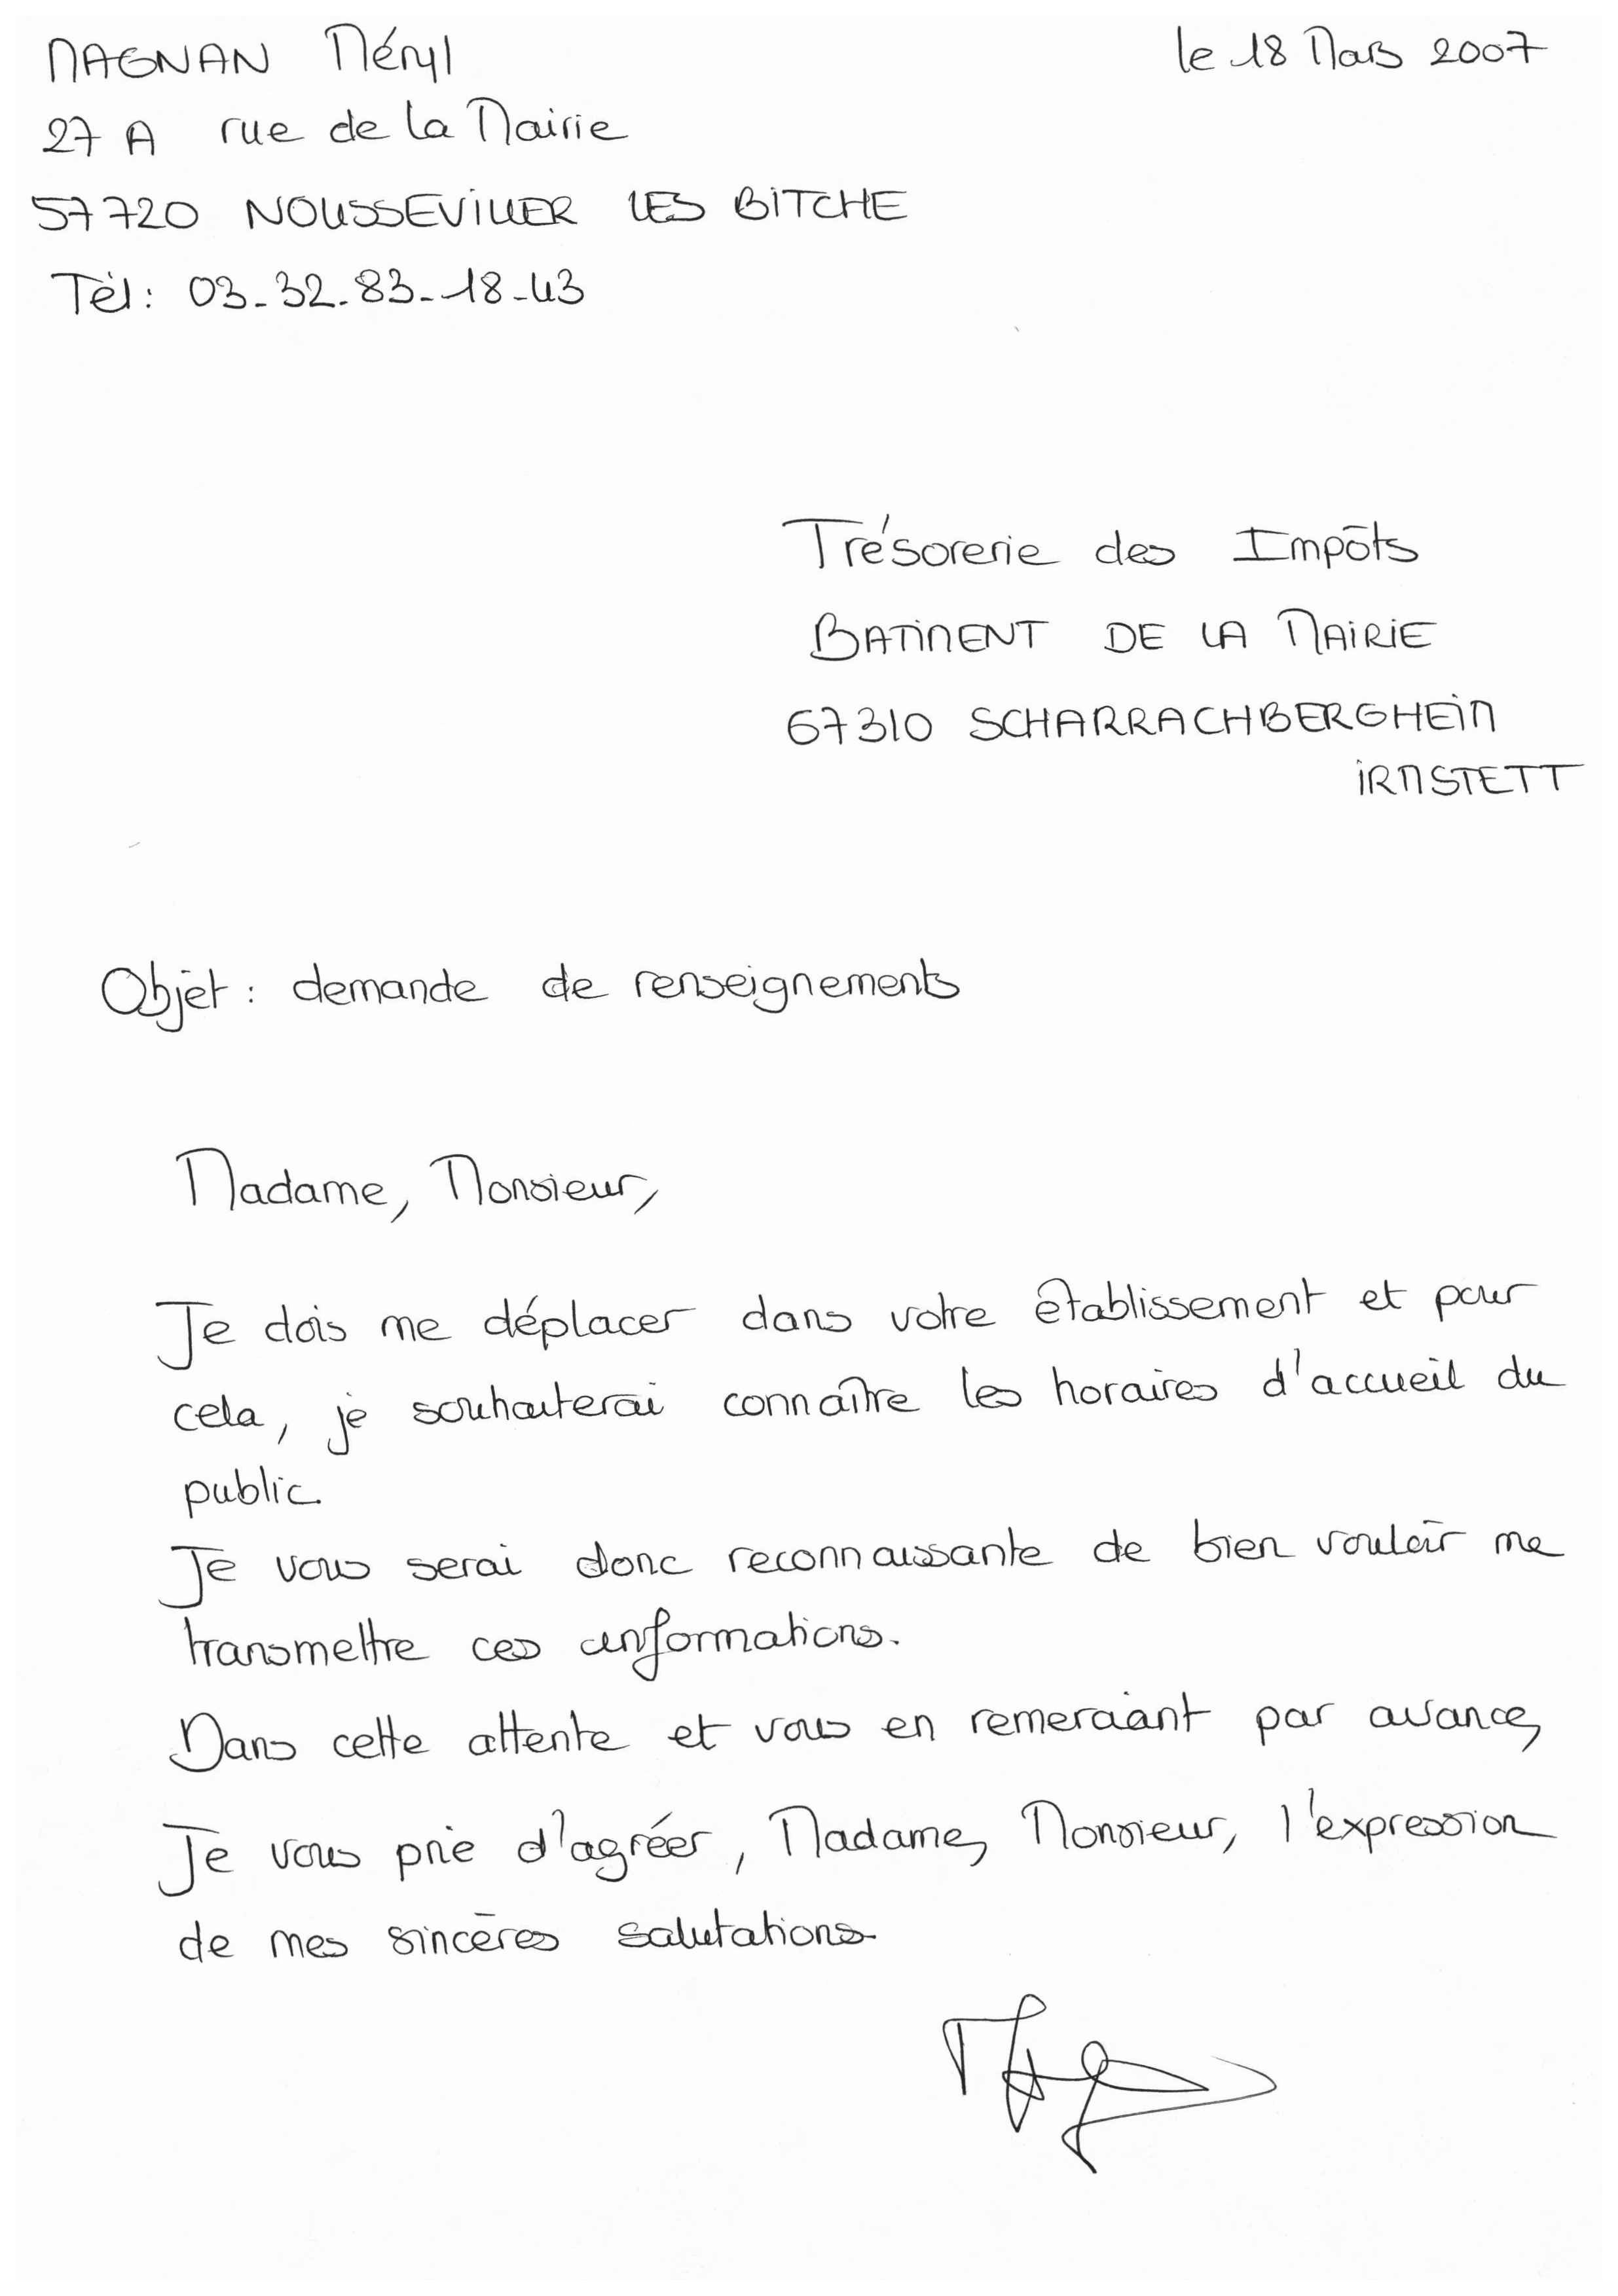 MAGNAN Méryl
le 18 Mars 2007
27 A rue de la Mairie
57720 NOUSSEVILLER LES BITCHE
Tèl : 03-32-83-18-43
Trésorerie des Impôts
BATIMENT DE LA MAIRIE
67310 SCHARRACHBERGHEIM
IRMSTETT
Objet : demande de renseignements
Madame, Monsieur,
Je dois me déplacer dans votre établissement et pour
cela, je souhaiterai connaître les horaires d'accueil du
public.
Je vous serai donc reconnaissante de bien vouloir me
transmettre ces informations.
Dans cette attente et vous en remerciant par avance,
Je vous prie d'agréer, Madame, Monsieur, l'expression
de mes sincères salutations.